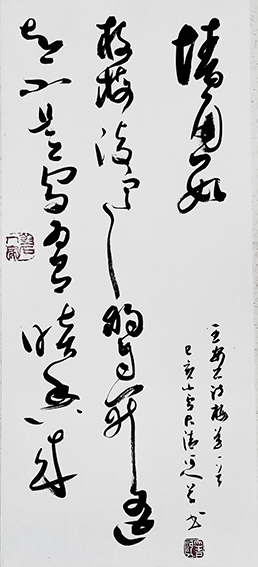 墙角数
枝梅凌寒独自开遥
知不是雪为有暗香来
王安石诗梅花一首
己亥小雪
书